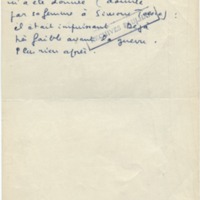 m'a été donnée (donnée
par sa femme à Simone
il était impuissant déjà
très faible avant la guerre.
Plus rien après.